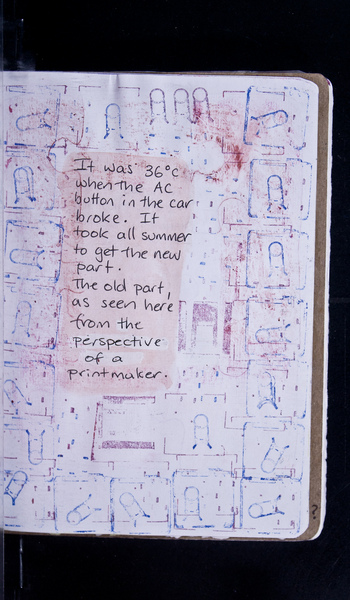 It was 36°C
when the AC
button in the car
broke. It
took all summer
to get the new
part.
The old part,
as seen here
from the
perspective
of a
printmaker.
?